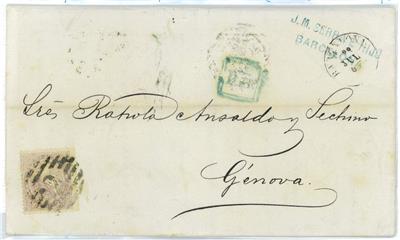 J. M. SERRA HIJO
BARC
BARCELONA
JUL
Sres Ratiola Ansaldo y Techino
Génova.